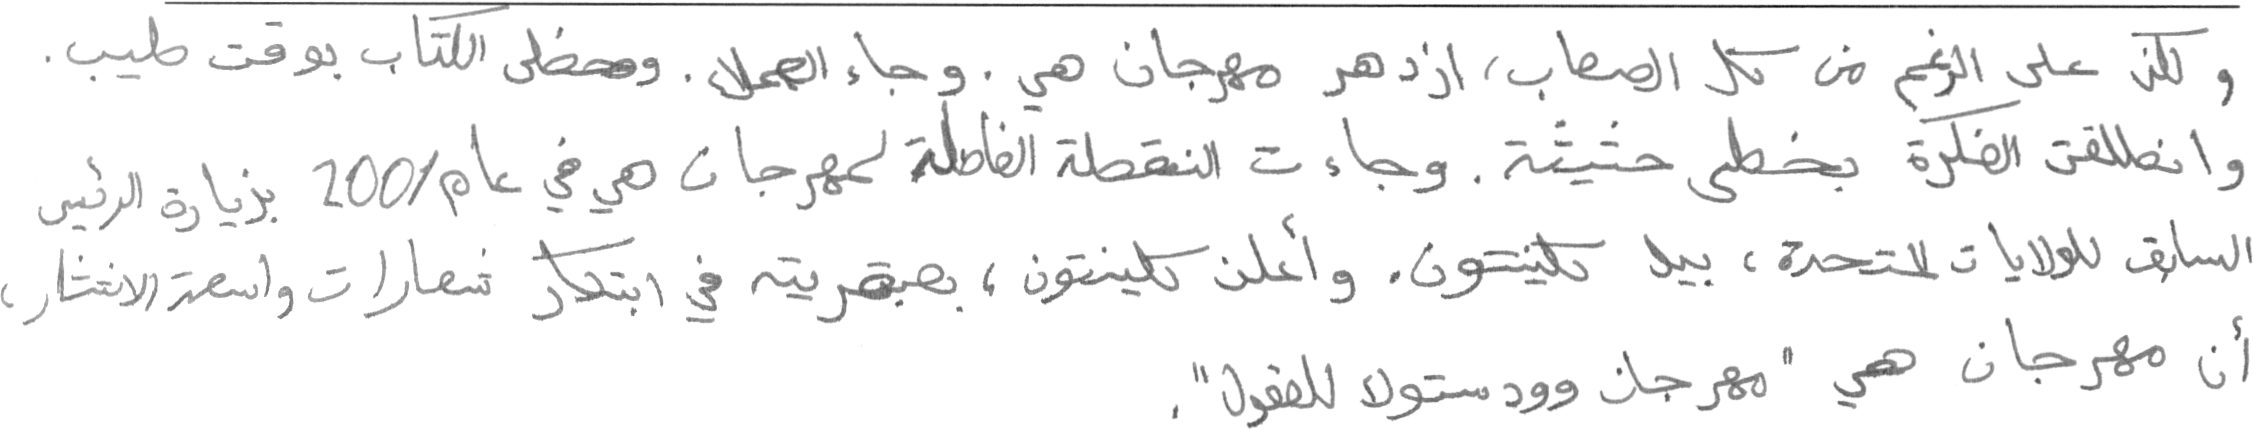 ولكن على الرغم من كل الصعاب، ازدهر مهرجان هي. وجاء العملاء. وحظى الكتاب بوقت طيب.
وانطلقت الفكرة بخطى حثيثة. وجاءت النقطة الفاصلة لمهرجان هي في عام 2001 بزيارة الرئيس
السابق للولايات المتحدة، بيل كلينتون. وأعلن كلينتون، بعبقريته في ابتكار شعارات واسعة الانتشار،
أن مهرجان هي "مهرجان وودستوك للعقول".